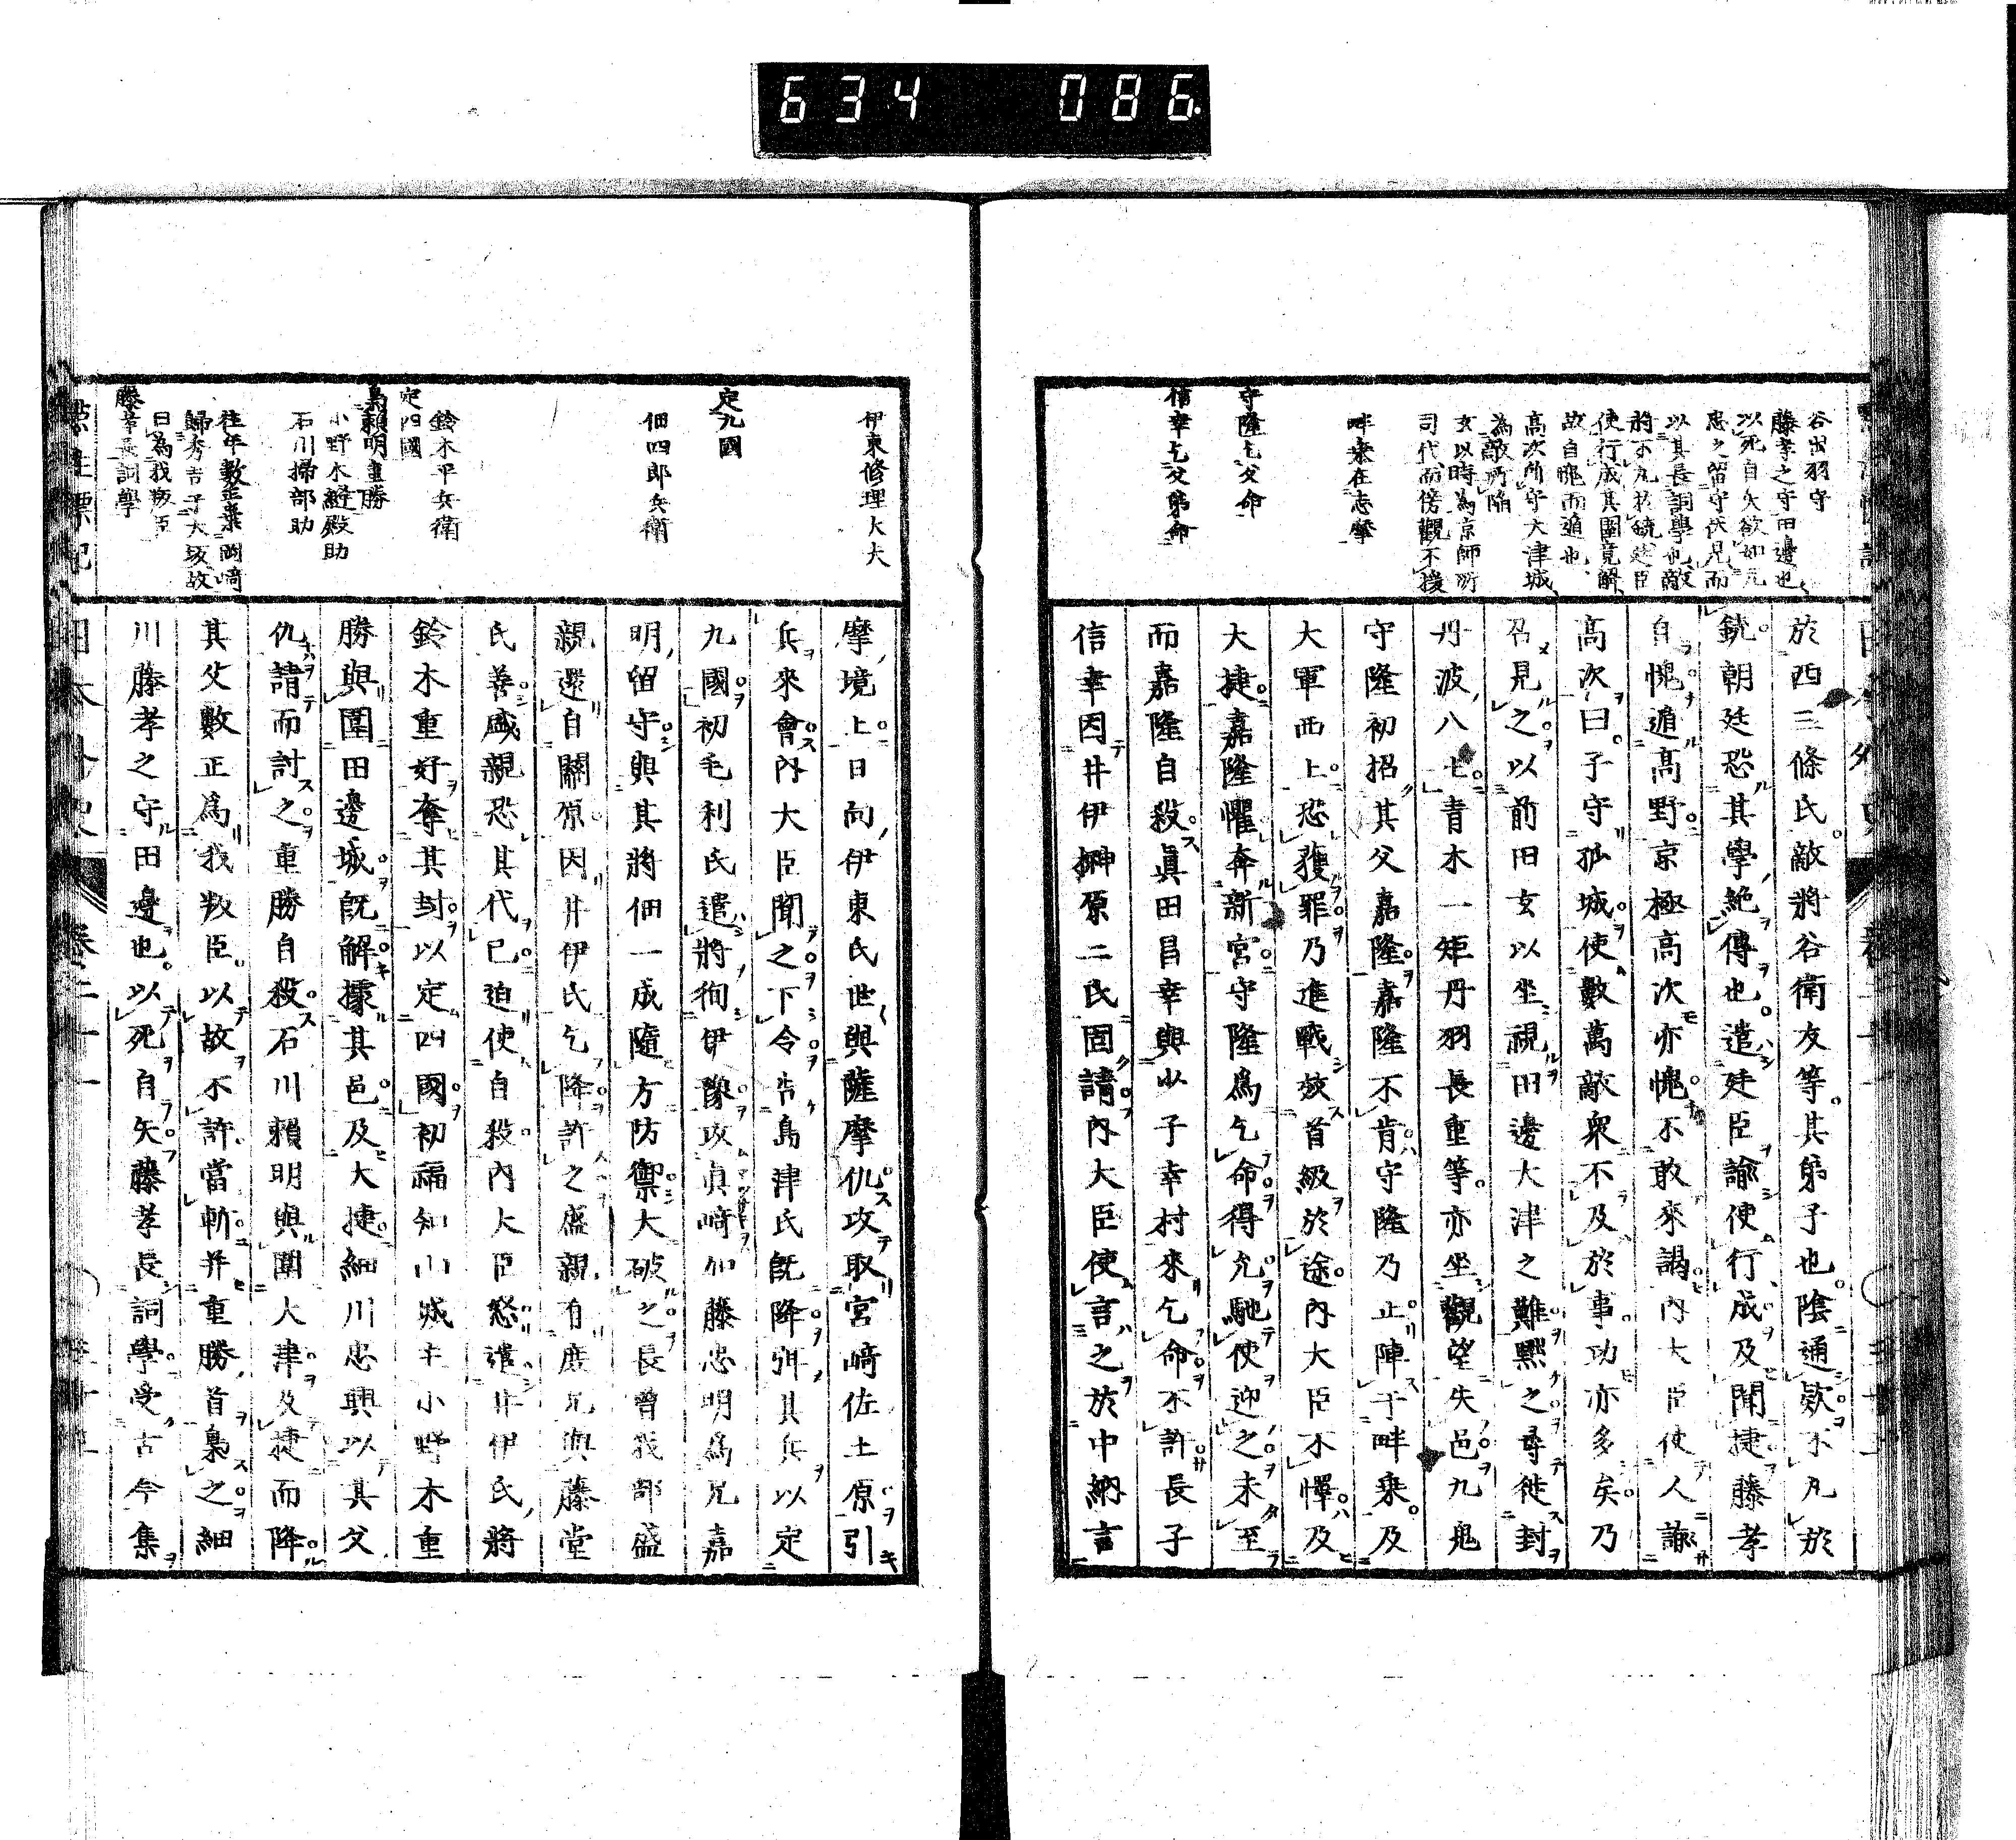 634 086
谷出羽守
藤孝之守田邊也
以死自矢欲如元
忠之留守伏見而
以其長詞學也敵
將不丸於銃廷臣
使行成其圍竟解
故自愧而遁也
高次所守大津城
為敵所陷
玄以時為京師所
司代而傍觀不援
畔乘在志摩
守隆乞父命
信幸乞父弟命
於西三條氏敵將谷衛友等其弟子也陰通欵不丸於
銃朝廷恐其學絶傳也遣廷臣諭使行成及聞捷藤孝
自愧遁高野京極高次亦愧不敢來謁內大臣使人諭
高次曰子守孤城使數萬敵衆不及於事功亦多矣乃
召見之以前田玄以坐視田邊大津之難黙之尋徙封
丹波八上青木一矩丹羽長重等亦坐觀望失邑九鬼
守隆初招其父嘉隆嘉隆不肯守隆乃止陣于畔乘及
大軍西上恐獲罪乃進戰效首級於途內大臣不懌及
大捷嘉隆懼奔新宮守隆爲乞命得允馳使迎之未至
而嘉隆自殺眞田昌幸與少子幸村來乞命不許長子
信幸因井伊榊原二氏固請內大臣使言之於中納言
伊東修理大夫
定九國
佃四郎兵衛
鈴木平兵衛
定四國
梟賴明重勝
小野木縫殿助
石川掃部助
往年數正棄岡﨑
歸秀吉于大坂故
曰為我叛臣
藤孝長詞學
摩境上日向伊東氏世與薩摩仇攻取宮﨑佐土原引
兵來會內大臣聞之下令告島津氏旣降弭其兵以定
九國初毛利氏遣將徇伊豫攻眞﨑加藤忠明爲兄嘉
明留守與其將佃一成隨方防禦大破之長曾我部盛
親還自關原因井伊氏乞降許之盛親有庶兄與藤堂
氏善盛親恐其代已迫使自殺內大臣怒遣井伊氏將
鈴木重好奪其封以定四國初福知山城主小野木重
勝與圍田邊城旣解據其邑及大捷細川忠興以其父
仇請而討之重勝自殺石川賴明與圍大津及捷而降
其父數正爲我叛臣以故不許當斬并重勝首梟之細
川藤孝之守田邊也以死自矢藤孝長詞學受古今集